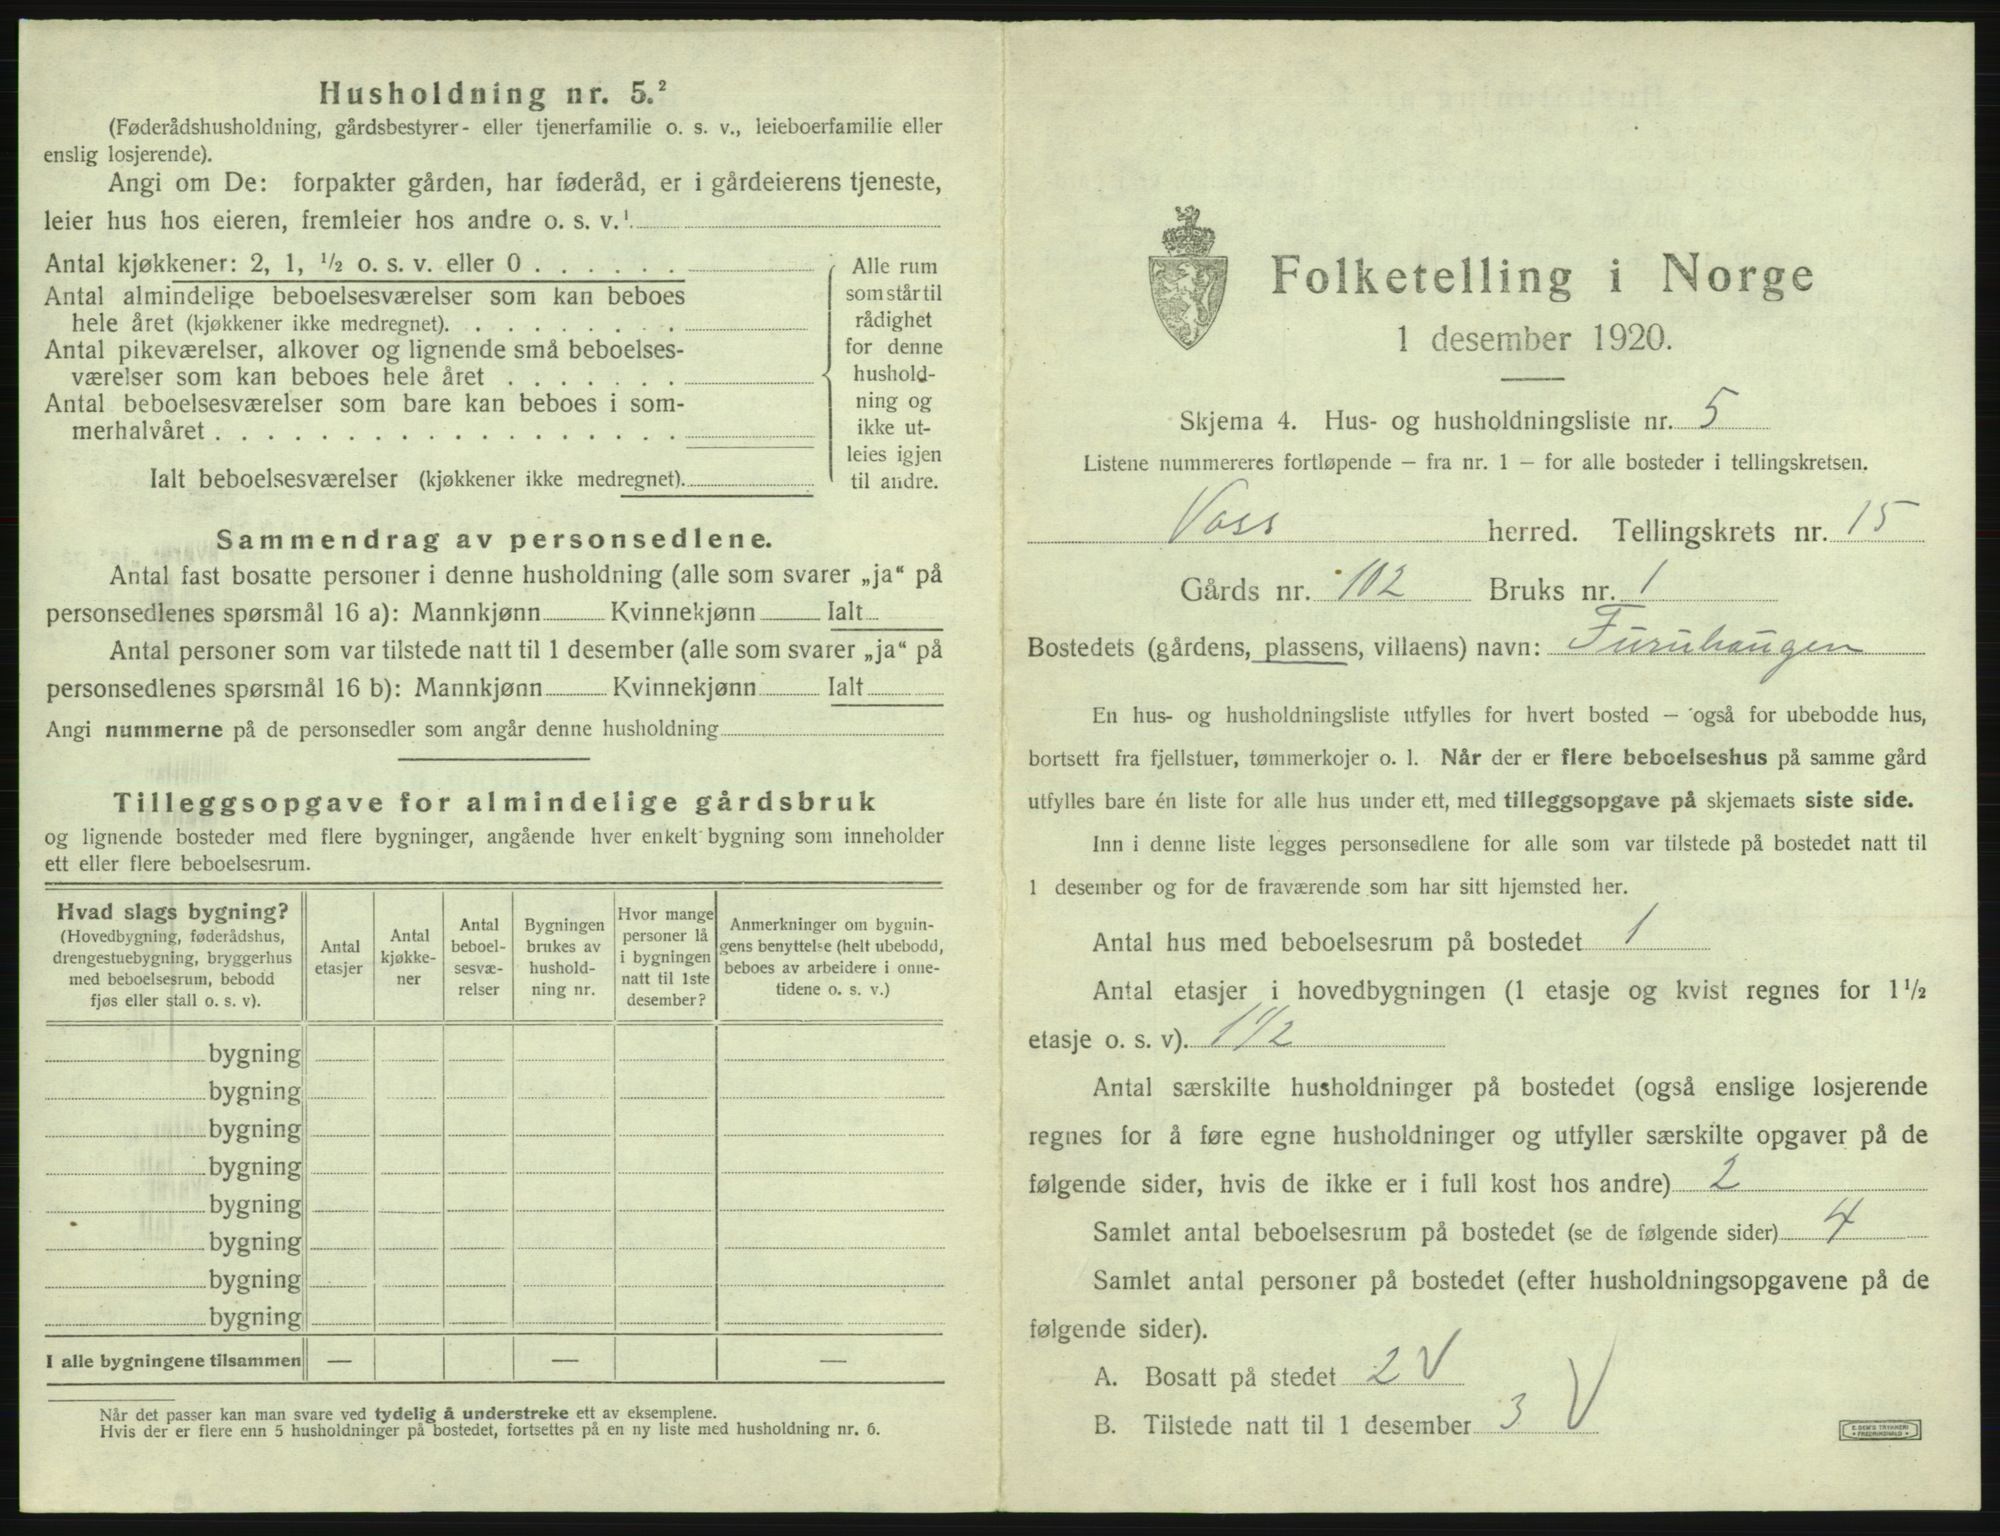 Husholdning nr. 5.²
(Føderådshusholdning, gårdsbestyrer- eller tjenerfamilie o. s. v., leieboerfamilie eller
enslig losjerende).
Angi om De: forpakter gården, har føderåd, er i gårdeierens tjeneste,
leier hus hos eieren, fremleier hos andre o. s. v.¹
Antal kjøkkener: 2, 1, ½ o. s. v. eller 0 . . . . . .
Antal almindelige beboelsesværelser som kan beboes
hele året (kjøkkener ikke medregnet). . . . . . . . .
Antal pikeværelser, alkover og lignende små beboelses-
værelser som kan beboes hele året . . . . . . .
Antal beboelsesværelser som bare kan beboes i som-
merhalvåret . . . . . . . . . . . . . . . . . .
Ialt beboelsesværelser (kjøkkener ikke medregnet).
Alle rum
som står til
rådighet
for denne
hushold-
ning og
ikke ut-
leies igjen
til andre.
Sammendrag av personsedlene.
Antal fast bosatte personer i denne husholdning (alle som svarer „ja“ på
personsedlenes spørsmål 16 a): Mannkjønn Kvinnekjønn Ialt
Antal personer som var tilstede natt til 1 desember (alle som svarer „ja“ på
personsedlenes spørsmål 16 b): Mannkjønn Kvinnekjønn Ialt
Angi nummerne på de personsedler som angår denne husholdning
Tilleggsopgave for almindelige gårdsbruk
og lignende bosteder med flere bygninger, angående hver enkelt bygning som inneholder
ett eller flere beboelsesrum.
Hvad slags bygning?
(Hovedbygning, føderådshus,
drengestuebygning, bryggerhus
med beboelsesrum, bebodd
fjøs eller stall o. s. v).
Antal
etasjer
Antal
kjøkke-
ner
Antal
beboel-
sesvæ-
relser
Bygningen
brukes av
hushold-
ning nr.
Hvor mange
personer lå
i bygningen
natt til 1ste
desember?
Anmerkninger om bygnin-
gens benyttelse (helt ubebodd,
beboes av arbeidere i onne-
tidene o. s. v.)
bygning
bygning
bygning
bygning
bygning
bygning
bygning
bygning
I alle bygningene tilsammen — — —
Når det passer kan man svare ved tydelig å understreke ett av eksemplene.
Hvis der er flere enn 5 husholdninger på bostedet, fortsettes på en ny liste med husholdning nr. 6.
Folketelling i Norge
1 desember 1920.
Skjema 4. Hus- og husholdningsliste nr. 5
Listene nummereres fortløpende – fra nr. 1 – for alle bosteder i tellingskretsen.
Voss herred. Tellingskrets nr. 15
Gårds nr. 102 Bruks nr. 1
Bostedets (gårdens, plassens, villaens) navn: Furuhaugen
En hus- og husholdningsliste utfylles for hvert bosted – også for ubebodde hus,
bortsett fra fjellstuer, tømmerkojer o. l. Når der er flere beboelseshus på samme gård
utfylles bare én liste for alle hus under ett, med tilleggsopgave på skjemaets siste side.
Inn i denne liste legges personsedlene for alle som var tilstede på bostedet natt til
1 desember og for de fraværende som har sitt hjemsted her.
Antal hus med beboelsesrum på bostedet 1
Antal etasjer i hovedbygningen (1 etasje og kvist regnes for 1½
etasje o. s. v). 1½
Antal særskilte husholdninger på bostedet (også enslige losjerende
regnes for å føre egne husholdninger og utfyller særskilte opgaver på de
følgende sider, hvis de ikke er i full kost hos andre) 2
Samlet antal beboelsesrum på bostedet (se de følgende sider) 4
Samlet antal personer på bostedet (efter husholdningsopgavene på de
følgende sider).
A. Bosatt på stedet 2 V
B. Tilstede natt til 1 desember 3 V